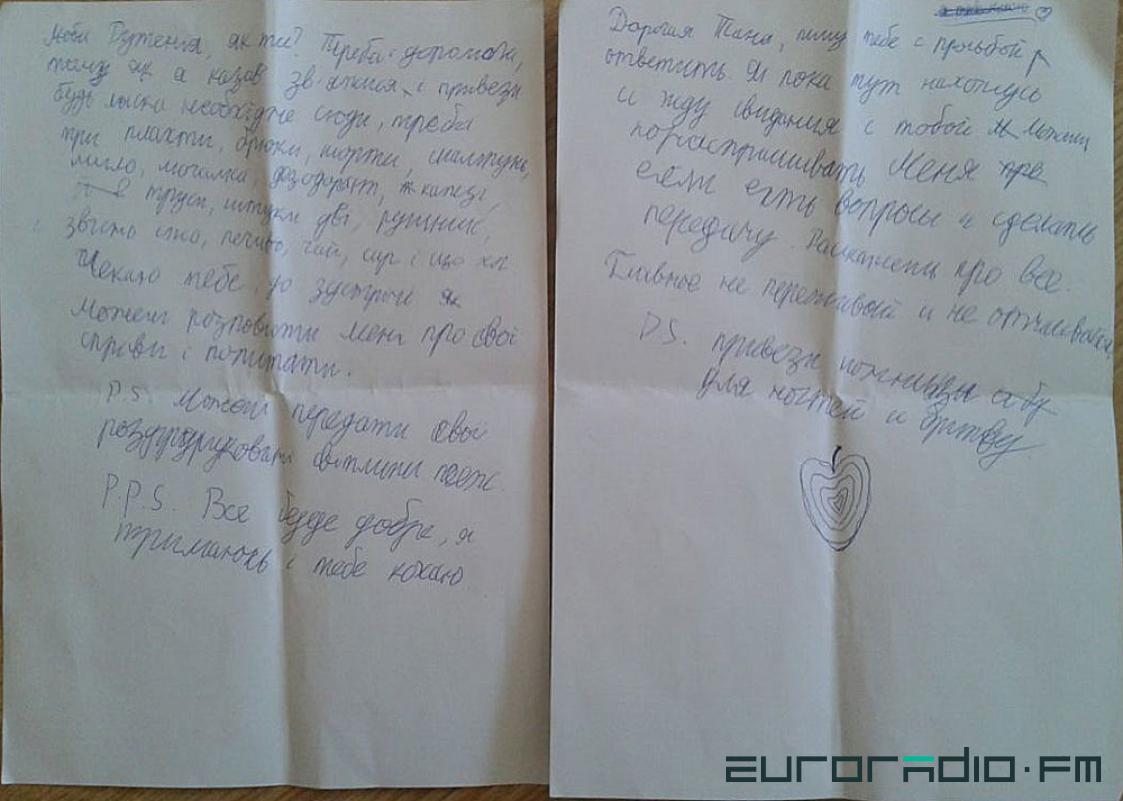 Люба Рутенія, як ти? Треба допомога,
тому як я казав зв'яжися і привези
будь ласка необхідне сюди, треба
три плахти, брюки, шорти, шампунь,
мило, мочалка, дезодорант, капезі,
труси, штуки дві, рушник,
звісно їжа, печиво, чай, сир і що хоч.
Чекаю тебе, до зустрічі як
Можеш розповісти мені про свої
справи і попитати.
P.S. Можеш передати свої
роздруковані світлини теж.
P.P.S. Все буде добре, я
тримаюсь і тебе кохаю
Дорогая Тана, пишу тебе с просьбой
ответить. Я пока тут нахожусь
и жду свидания с тобой Можешь
пораспрашивать меня
если есть вопросы и сделать
передачу. Расскажешь про все.
Главное не переживай и не отчаивайся
P.S. привези ножницы
для ногтей и бритву
EURORADIO.FM